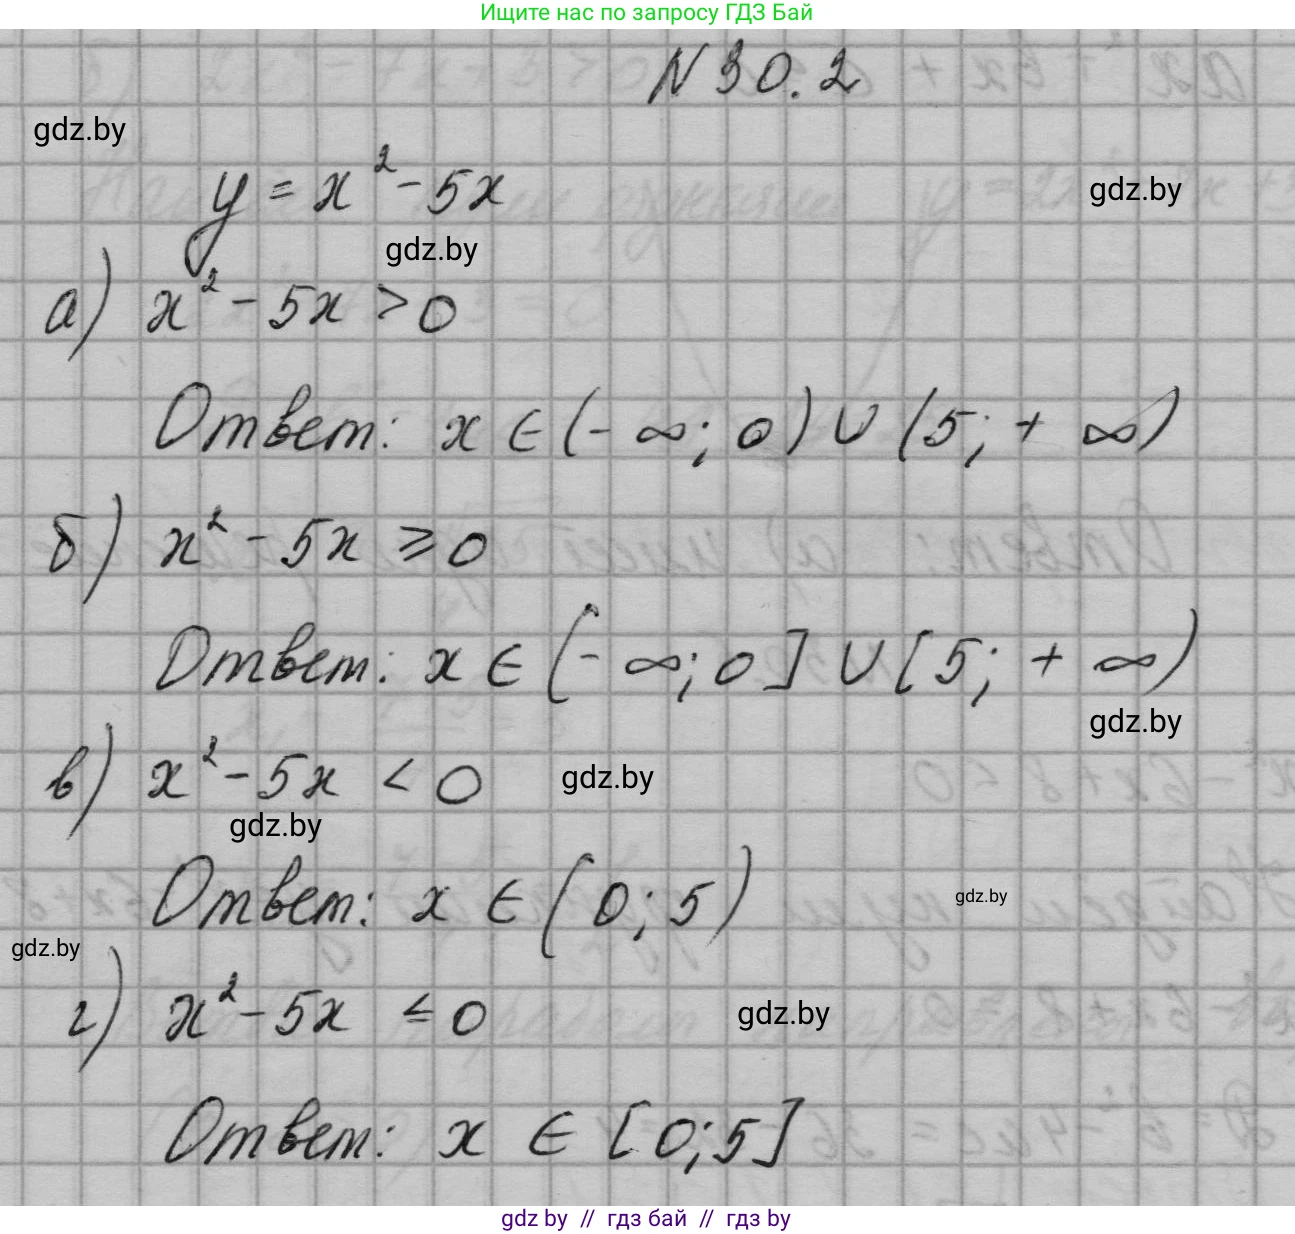 Ищите нас по запросу ГДЗ Бай
N 30.2
gdz.by
y = x² - 5x
gdz.by
gdz.by
а) x² - 5x > 0
Ответ: x ∈ (- ∞; 0) ∪ (5; + ∞)
б) x² - 5x ≥ 0
Ответ: x ∈ (- ∞; 0] ∪ [5; + ∞)
gdz.by
в) x² - 5x < 0
gdz.by
gdz.by
Ответ: x ∈ (0; 5)
gdz.by
gdz.by
г) x² - 5x ≤ 0
gdz.by
Ответ: x ∈ [0; 5]
gdz by // гдз бай // гдз by